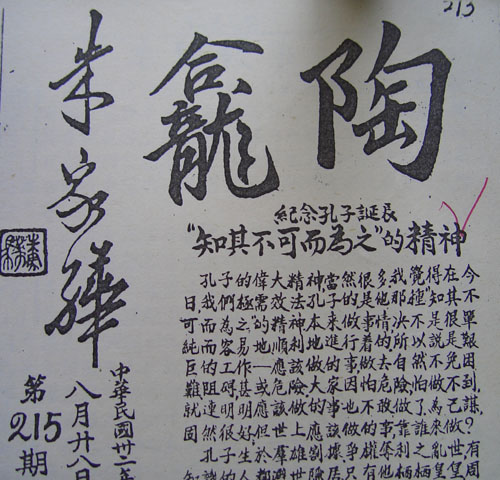 213
陶龕
朱家驊
紀念孔子誕辰
"知其不可而為之"的精神
孔子的偉大精神當然很多,我覺得在今
日,我們極需效法孔子的是他那種"知其不
可而為之"的精神本來做事情決不是很單
純而容易地順利地進行着的,所以說是艱
巨的工作—應該做的事做去自然不免困
難阻碍甚或危險,大家因怕危險,怕做不到,
就連明明應該做的事也不敢做了,為己謀,
固然很好但世上應該做的事,靠誰來做?
孔子生於羣雄割據爭權奪利之亂世有
知識的人都避世隱居只有他栖栖皇皇周
中華民國卅二年
八月廿八日
第215期